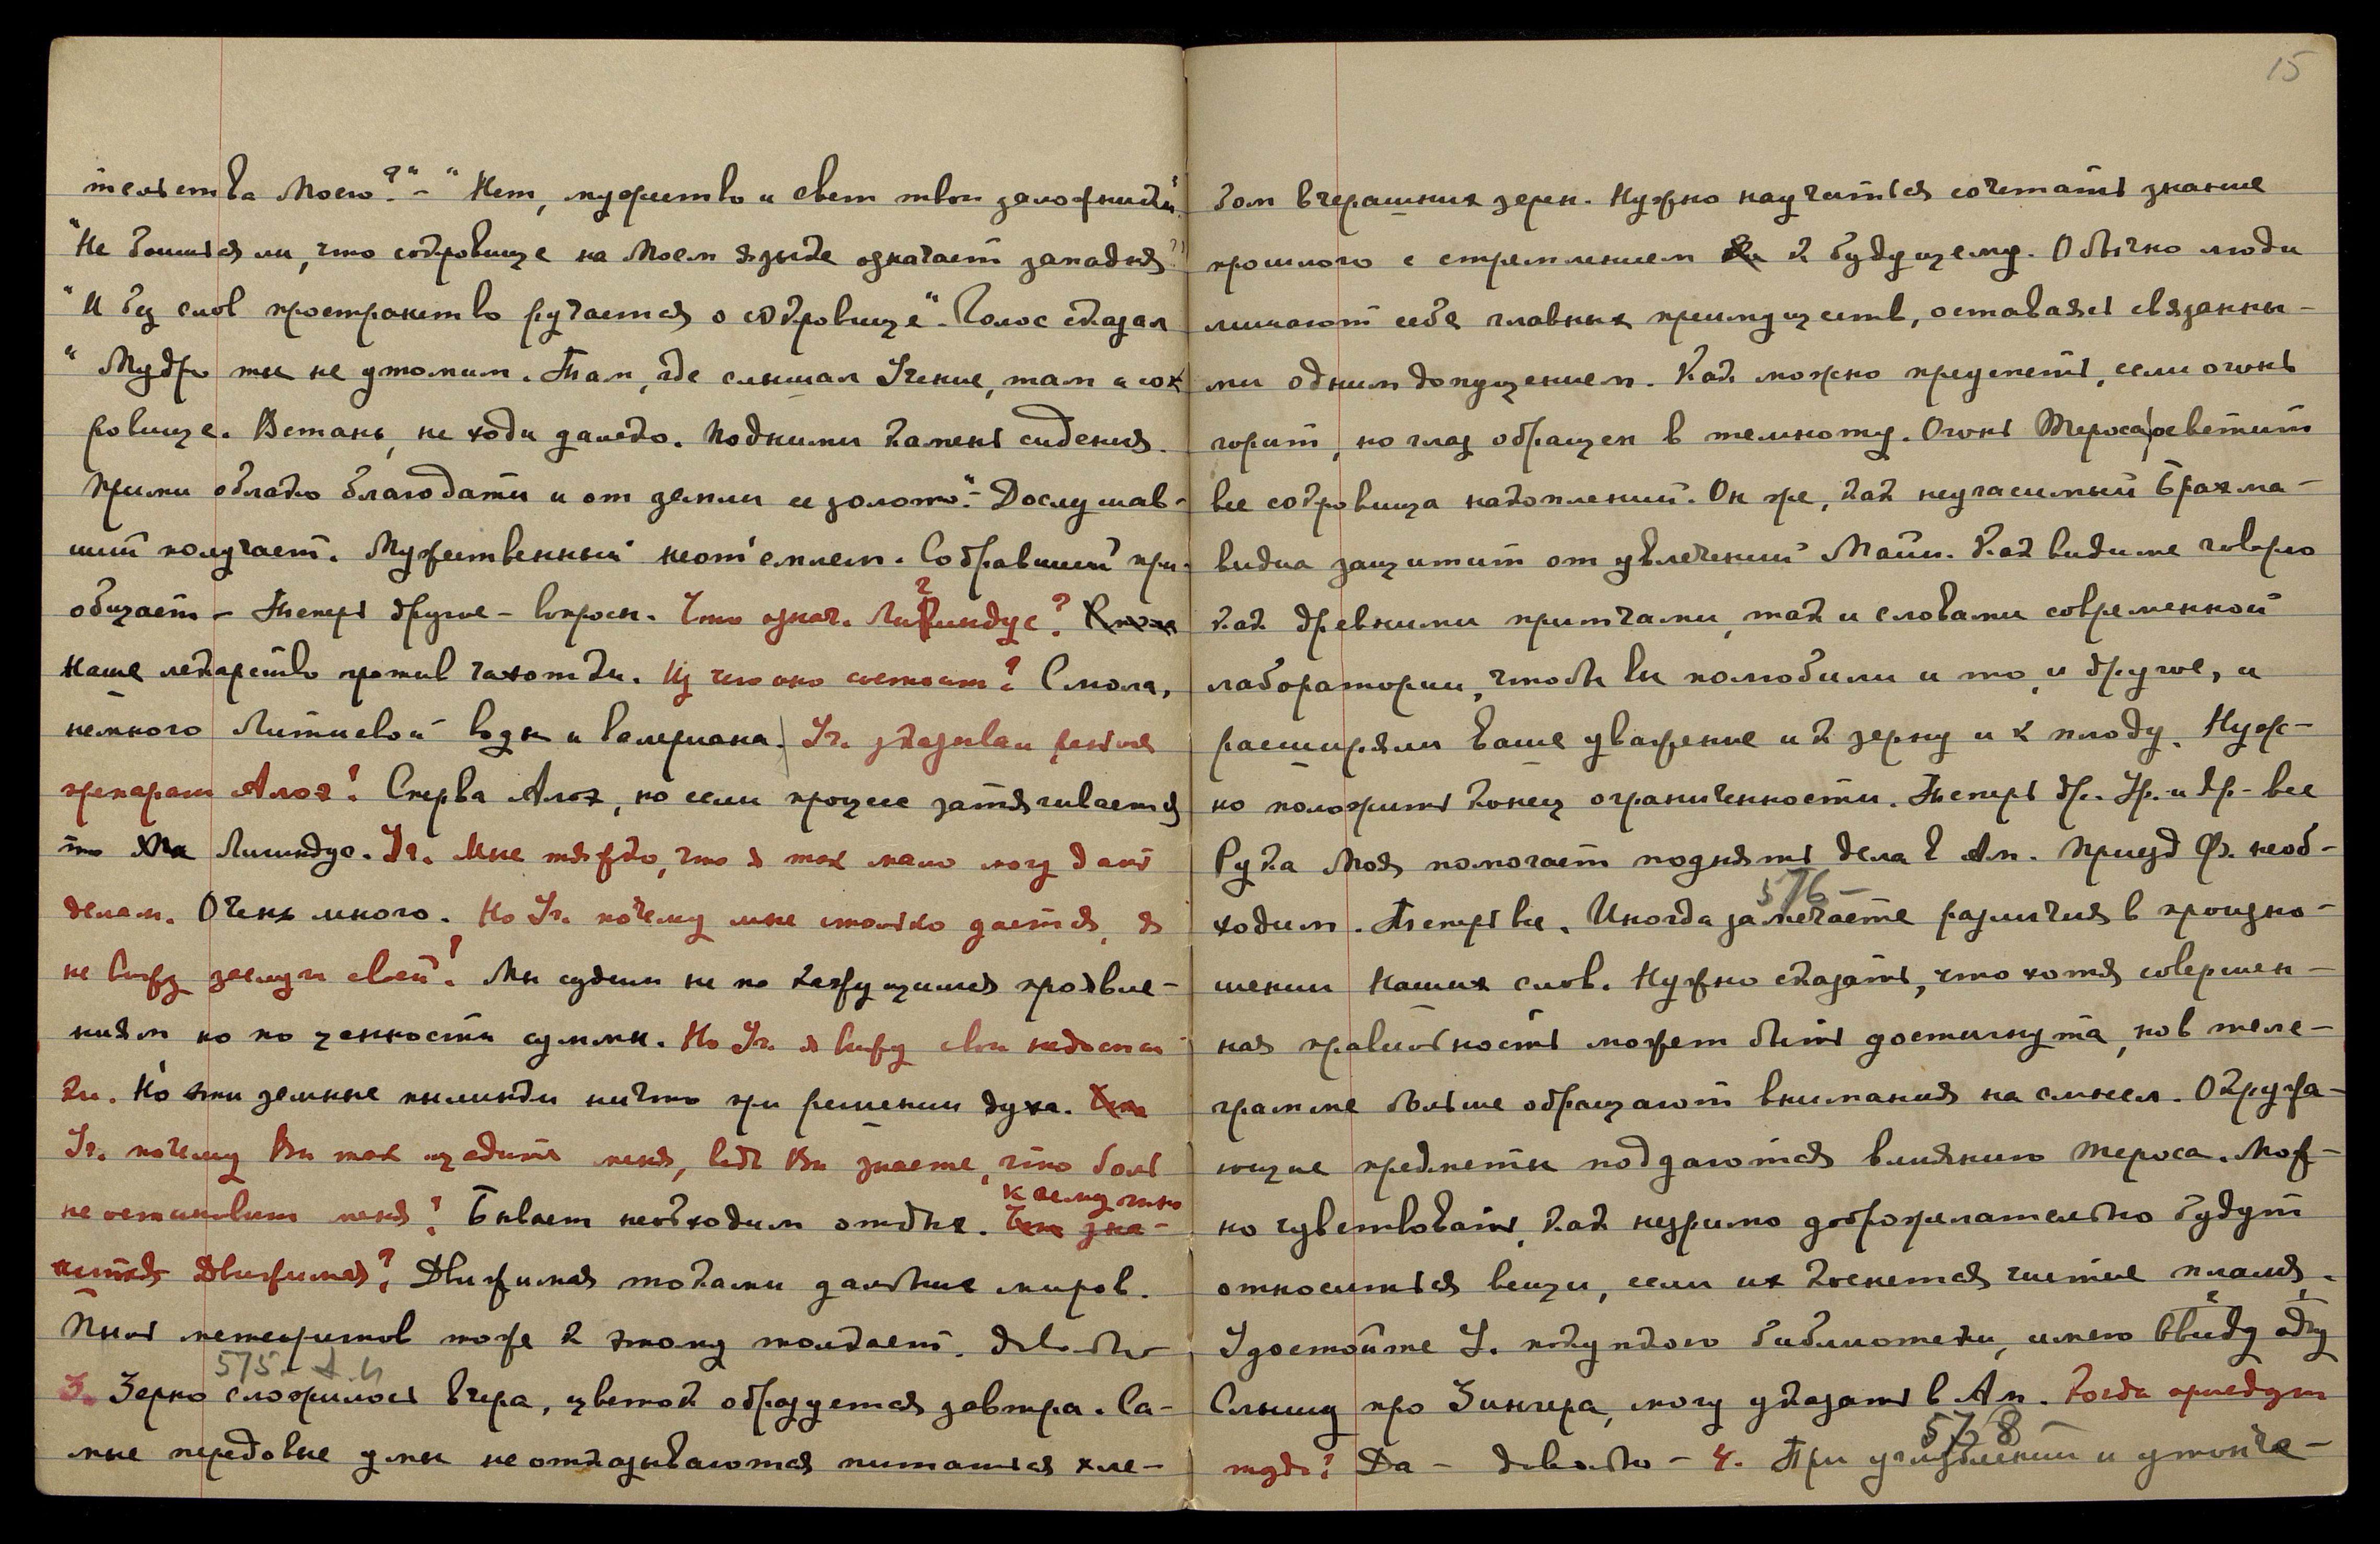 тельства Моего?" – "Нет, мужество и свет твои заложники".
"Не боишься ли, что сокровище на Моем языке означает западня?"
"И без слов пространство ручается о сокровище". Голос сказал
"Мудро ты не утомим. Там, где слышал Учение, там и сок
ровище. Встань, не ходи далеко. Подними камень сидения.
Прими облако благодати и от земли ее золото". – Дослушав-
ший получает. Мужественный неот'емлем. Собравший при-
общает – Теперь другое – вопросы. Что означ. Лигиндус?
Наше лекарство против чахотки. Из чего оно состоит? Смола,
немного Литиевой воды и валериана. Уч. указывал раньше
препарат Алоэ? Сперва Алоэ, но если процесс затягивается
то Лигиндус. Уч. Мне тяжко, что я так мало могу дать
делам. Очень много. Но Уч. почему мне столько дается, я
не вижу заслуги своей? Мы судим не по кажущимся проявле-
ниям но по ценности суммы. Но Уч. я вижу свои недостат
ки. Но эти земные пылинки ничто при решении духа.
Уч. почему Вы так щадите меня, ведь Вы знаете, что боль
к чему так
не остановит меня? Бывает необходим отдых. Что зна-
чится Движимая? Движимая токами дальних миров.
Пыль метеоритов тоже к этому толкает. довольно
575. А.И
3. Зерно сложилось вчера, цветок образуется завтра. Са-
мые передовые умы не отказываются питаться хле-
15
бом вчерашних зерен. Нужно научиться сочетать знание
прошлого с стремлением к будущему. Обычно люди
лишают себя главных преимуществ, оставаясь связанны-
ми одним допущением. Как можно преуспеть, если огонь
горит, но глаз обращен в темноту. Огонь Тероса осветит
все сокровища накоплений. Он же, как неугасимый Брахма-
видиа защитит от увлечений Майи. Как видите говорю
как древними притчами, так и словами современной
лаборатории, чтобы вы полюбили и то, и другое, и
расширяли ваше уважение и к зерну и к плоду. Нуж-
но положить конец ограниченности. Теперь др. Ур. и др – все
Рука Моя помогает поднять дела в Ам. Приезд Ф. необ-
576 –
ходим. Теперь все. Иногда замечаете различия в произно-
шении Наших слов. Нужно сказать, что хотя совершен-
ная правильность может быть достигнута, но в теле-
грамме больше обращают внимания на смысл. Окружа-
ющие предметы поддаются влиянию Тероса. Мож-
но чувствовать, как незримо доброжелательно будут
относиться вещи, если их коснется чистое пламя.
Удостойте У. покупкою библиотеки, имею ввиду одну
Слышу про Зингера, могу указать в Ам. Когда приедут
578
туда? Да – довольно – 4. При углублении и утонче-